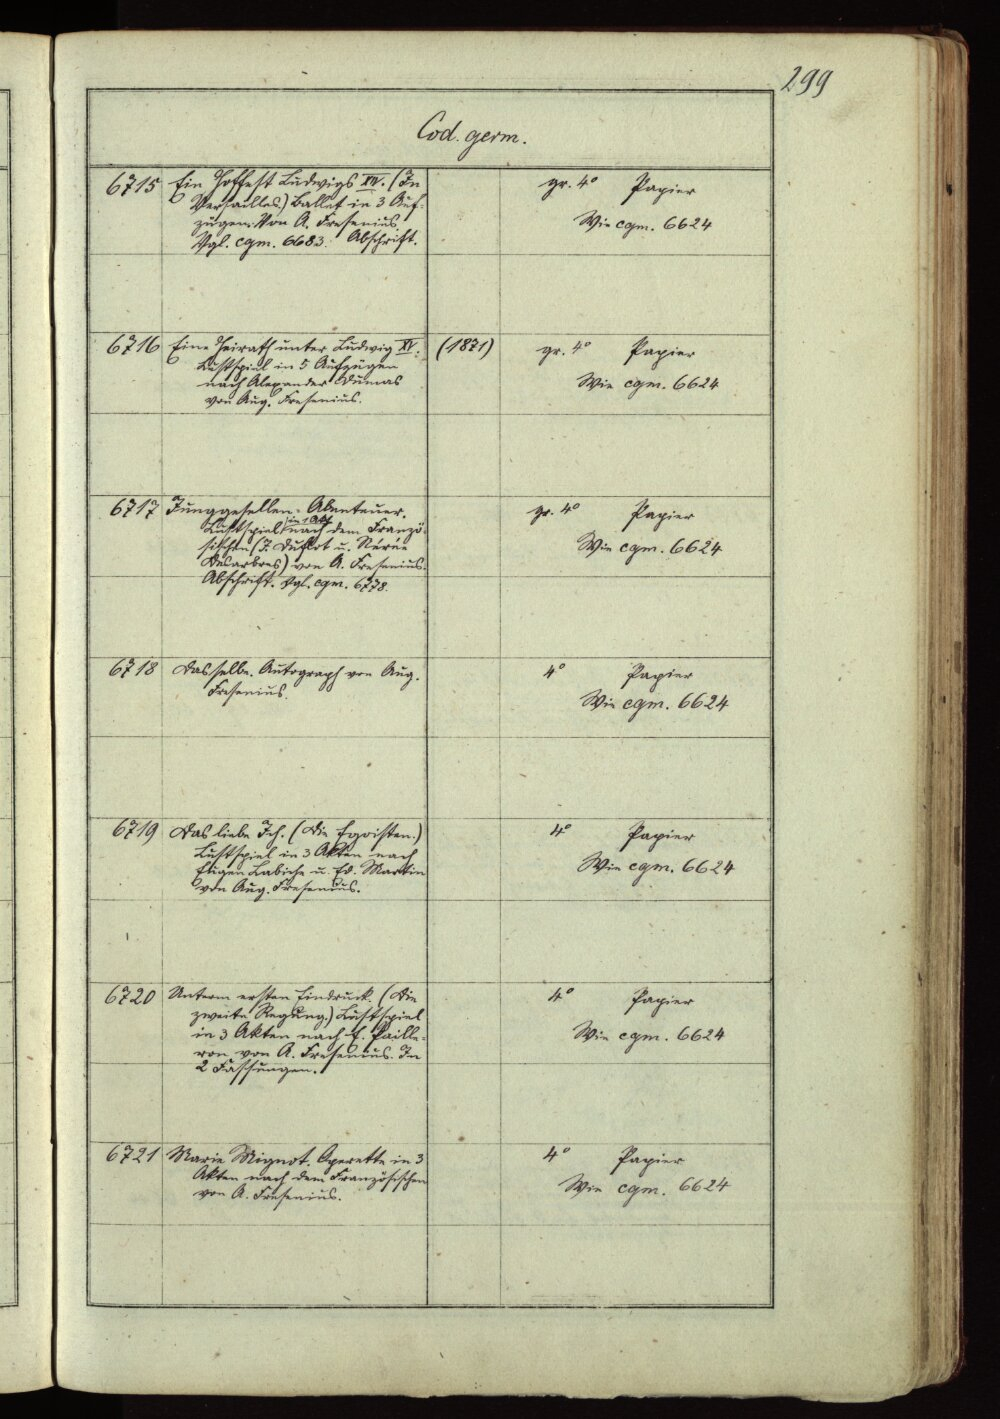 299
Cod. germ.
6715 Ein Hoffest Ludwigs XIV. (In gr. 4° Papier
Versailles.) Ballet in 3 Auf- Wie cgm. 6624
zügen. Von A. Fresenius.
Vgl. cgm. 6683. Abschrift.
6716 Eine Heirath unter Ludwig XV. (1871) gr. 4° Papier
Lustspiel in 5 Aufzügen Wie cgm. 6624
nach Alexander Dumas
von Aug. Fresenius.
6717 Junggesellen-Abenteuer. gr. 4° Papier
Lustspiel in 1 Akt nach dem Franzö- Wie cgm. 6624
sischen (J. Duflot u. Nérée
Desarbres) von A. Fresenius.
Abschrift. Vgl. cgm. 6778.
6718 Dasselbe. Autograph von Aug. 4° Papier
Fresenius. Wie cgm. 6624
6719 Das liebe Ich. (Die Egoisten.) 4° Papier
Lustspiel in 3 Akten nach Wie cgm. 6624
Eugen Labiche u. Ed. Martin
von Aug. Fresenius.
6720 Unterm ersten Eindruck. (Die 4° Papier
zweite Regung.) Lustspiel Wie cgm. 6624
in 3 Akten nach E. Paille-
ron von A. Fresenius. In
2 Fassungen.
6721 Marie Mignot. Operette in 3 4° Papier
Akten nach dem Französischen Wie cgm. 6624
von A. Fresenius.